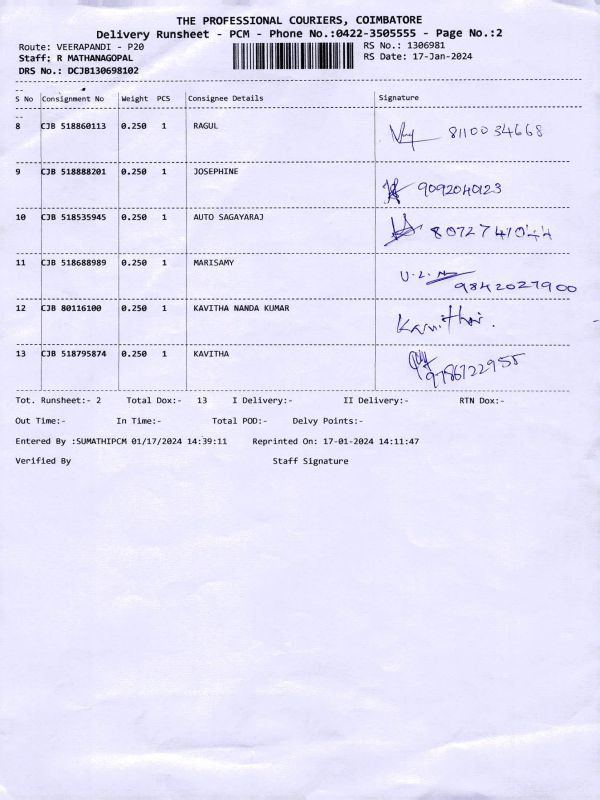 THE PROFESSIONAL COURIERS, COIMBATORE
Delivery Runsheet - PCM - Phone No.:0422-3505555 - Page No.:2
Route: VEERAPANDI - P20 RS No.: 1306981
Staff: R MATHANAGOPAL RS Date: 17-Jan-2024
DRS No.: DCJB130698102
S No Consignment No Weight PCS Consignee Details Signature
8 CJB 518860113 0.250 1 RAGUL 8110034668
9 CJB 518888201 0.250 1 JOSEPHINE 9092040123
10 CJB 518535945 0.250 1 AUTO SAGAYARAJ 8072741044
11 CJB 518688989 0.250 1 MARISAMY 9842027900
12 CJB 80116100 0.250 1 KAVITHA NANDA KUMAR Kavitha.
13 CJB 518795874 0.250 1 KAVITHA 9786722955
Tot. Runsheet:- 2 Total Dox:- 13 I Delivery:- II Delivery:- RTN Dox:-
Out Time:- In Time:- Total POD:- Delvy Points:-
Entered By :SUMATHIPCM 01/17/2024 14:39:11 Reprinted On: 17-01-2024 14:11:47
Verified By Staff Signature